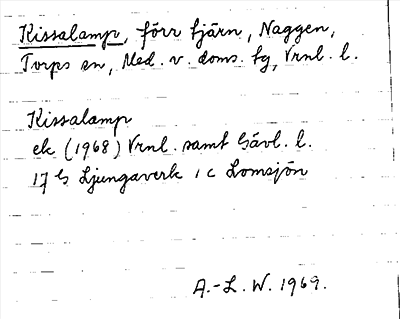 Kissalamp, förr tjärn, Naggen,
Torps sn, Med. v. doms. tg, Vrnl. l.
Kissalamp
ek (1968) Vrnl. samt Gävl. l.
17 G Ljungaverk 1 c Lomsjön
A.-L. W. 1969.